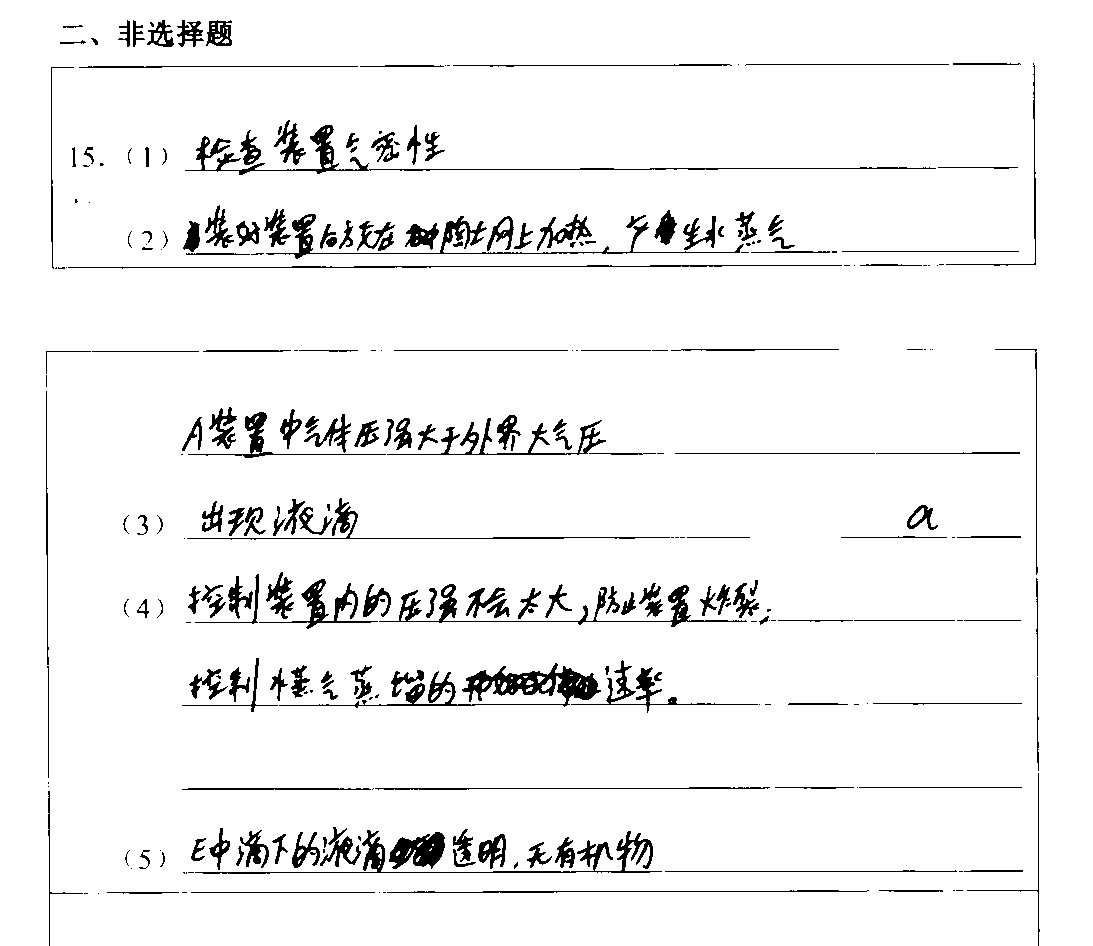 二、非选择题
15.（1）检查装置气密性
（2）装好装置后放在陶土网上加热，产生水蒸气
A装置中气体压强大于外界大气压
（3）出现液滴 a
（4）控制装置内的压强不会太大，防止装置炸裂；
控制水蒸气蒸馏的速率。
（5）E中滴下的液滴透明，无有机物